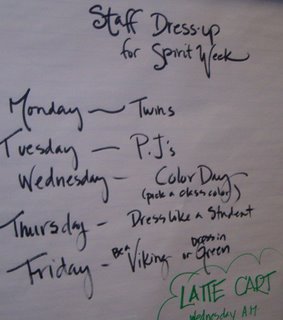 Staff Dress-up
for Spirit Week
Monday — Twins
Tuesday — P.J's
Wednesday - Color Day
(pick a class color)
Thursday - Dress like a Student
Friday - Be a Viking or Dress in Green
LATTE CART
Wednesday AM